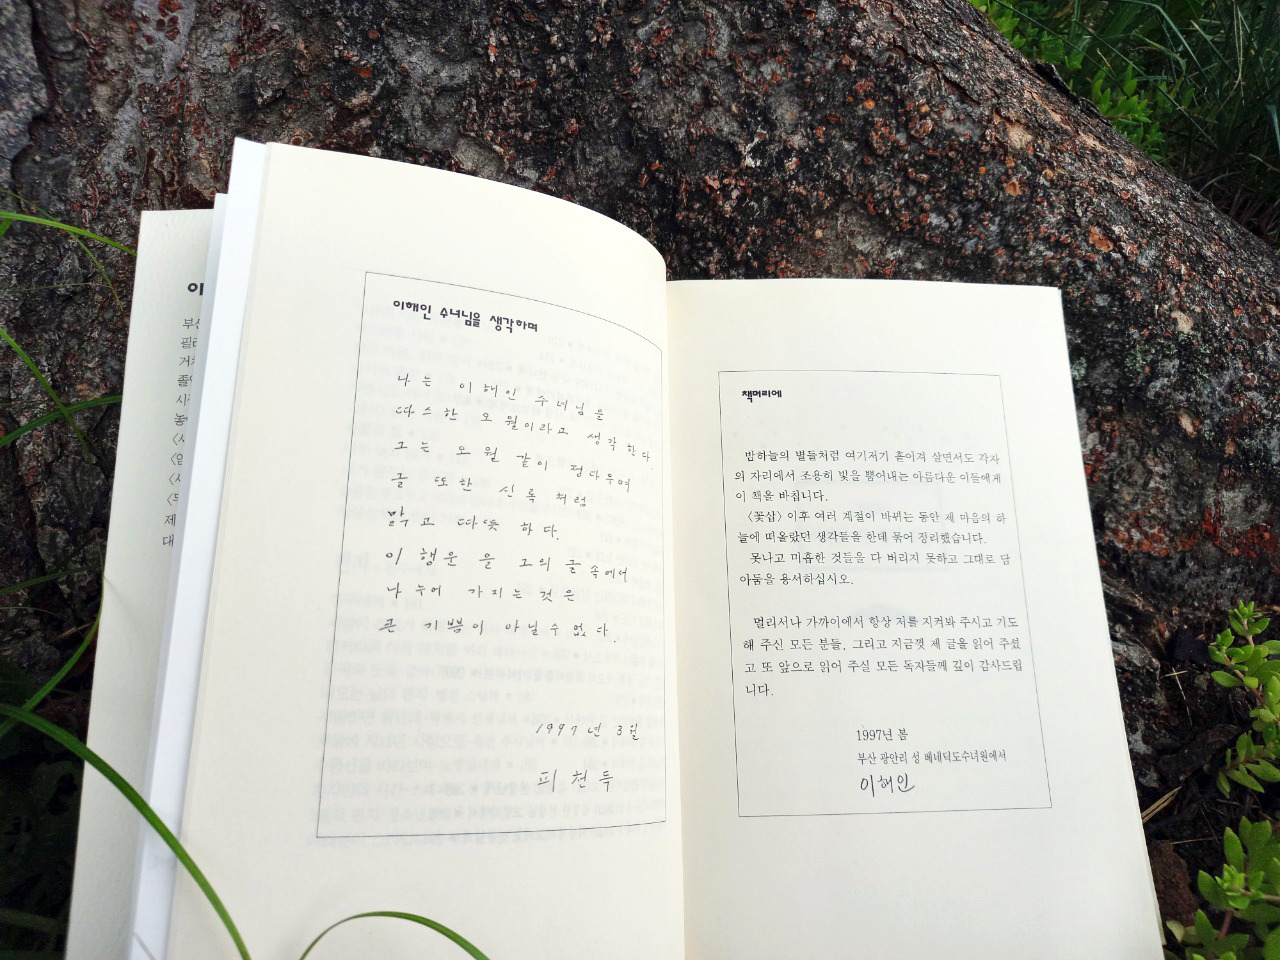 이
부산
필리
거쳐
졸업
사
제
대
이해인 수녀님을 생각하며
나는 이해인 수녀님을
따스한 오월이라고 생각한다.
그는 오월 같이 정다우며
글 또한 신록처럼
맑고 따뜻하다.
이 행운을 그의 글 속에서
나누어 가지는 것은
큰 기쁨이 아닐 수 없다.
1997년 3월
피천득
책머리에
밤하늘의 별들처럼 여기저기 흩어져 살면서도 각자
의 자리에서 조용히 빛을 뿜어내는 아름다운 이들에게
이 책을 바칩니다.
〈꽃삽〉 이후 여러 계절이 바뀌는 동안 제 마음의 하
늘에 떠올랐던 생각들을 한데 묶어 정리했습니다.
못나고 미흡한 것들을 다 버리지 못하고 그대로 담
아둠을 용서하십시오.
멀리서나 가까이에서 항상 저를 지켜봐 주시고 기도
해 주신 모든 분들, 그리고 지금껏 제 글을 읽어 주셨
고 또 앞으로 읽어 주실 모든 독자들께 깊이 감사드립
니다.
1997년 봄
부산 광안리 성 베네딕도수녀원에서
이해인